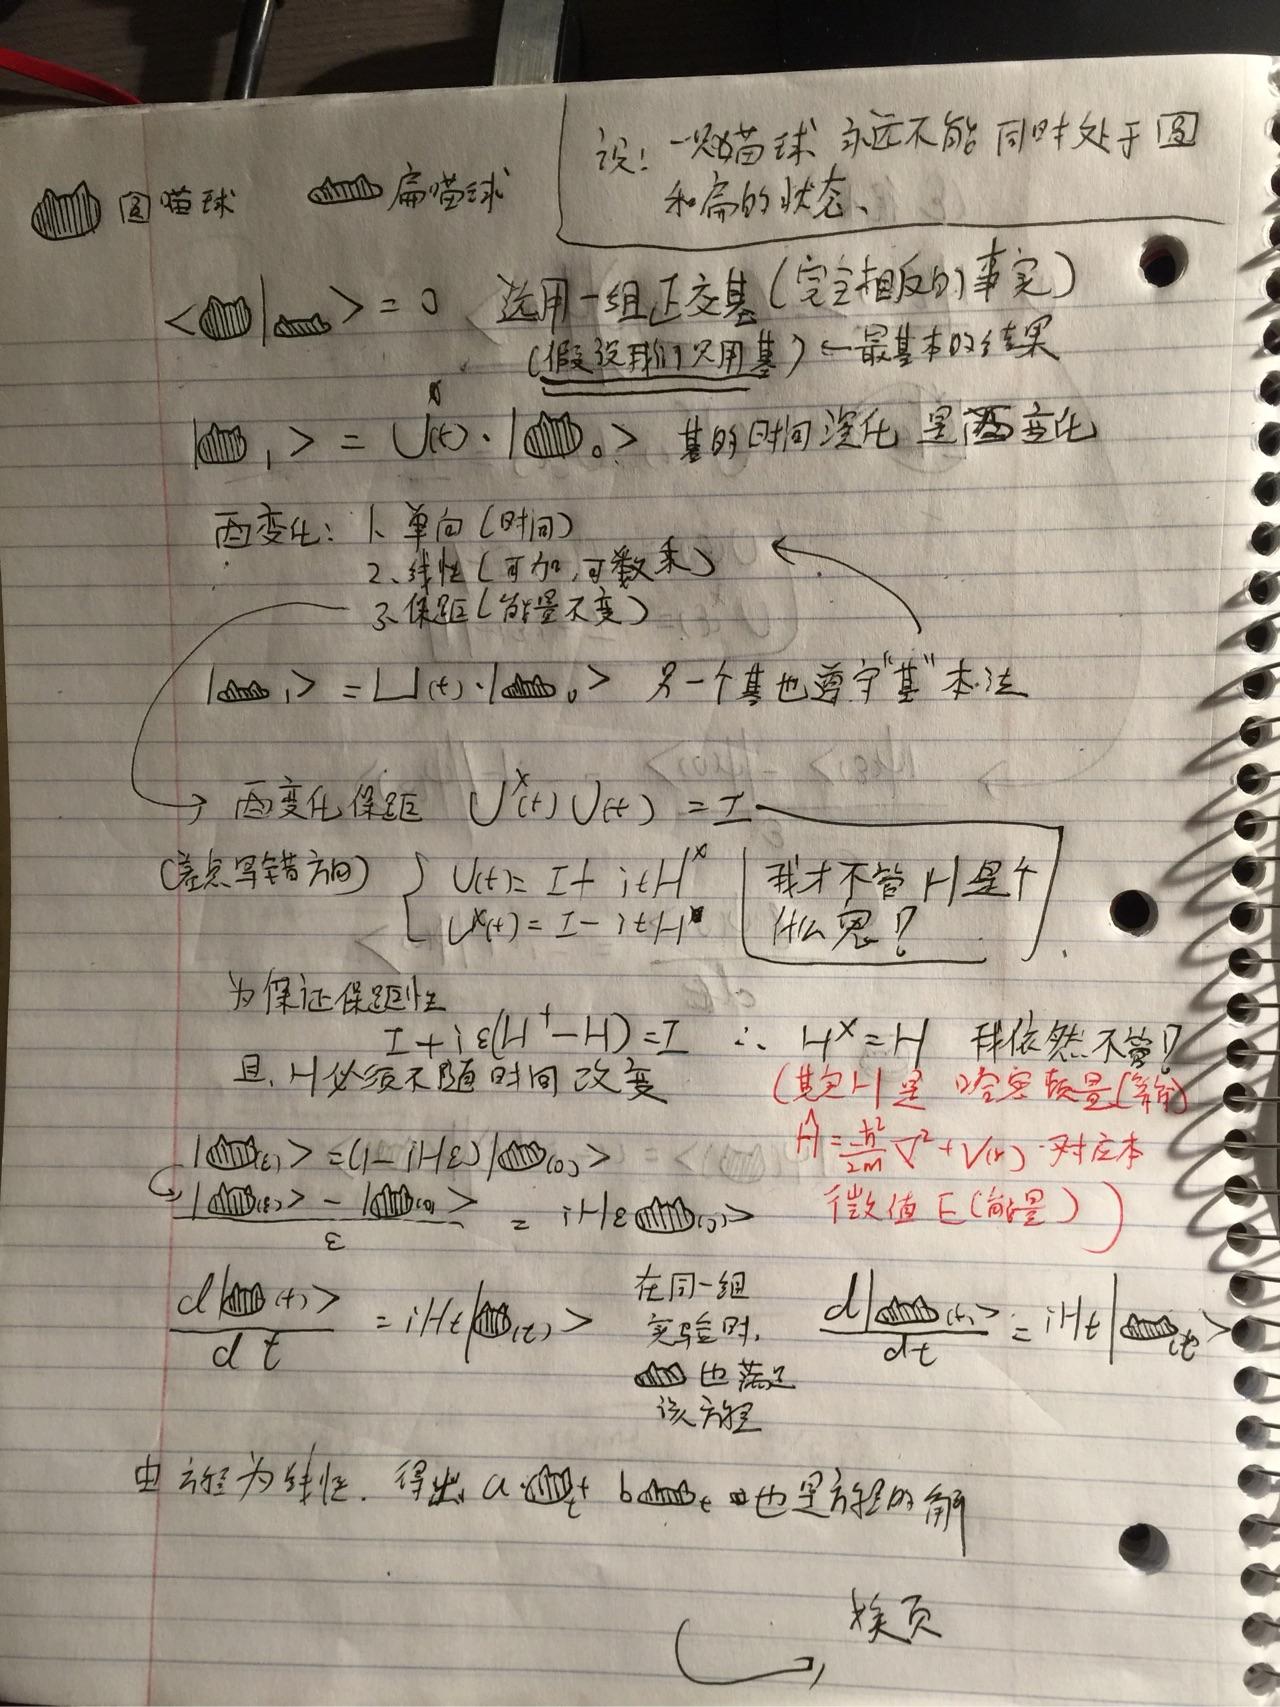 设：一只喵球 永远不能 同时处于 圆
和扁的状态、
圆喵球 扁喵球
< | > = 0 选用一组正交基 (完全相反的事实)
(假设我们只用基) ← 最基本的结果
| ₁> = U(t)· | ₀> 基的时间演化 是酉变化
酉变化: 1、单向 (时间)
2、线性 (可加,可数乘)
3、保距 (能量不变)
| ₁> = U(t)·| ₀> 另一个基也遵守"基"本法
→ 酉变化保距 Uˣ(t) U(t) = I
(差点写错方向) { U(t)= I + itHˣ
Uˣ(t) = I - itH
我才不管 H 是个
什么鬼!?
为保证保距性
I + iε(H⁺ - H) = I ∴ Hˣ = H 我依然不管!?
且, H必须不随时间改变
(其实H是 哈密顿量[算符]
Ĥ = ħ²/2m ∇² + V(r) 对应本
征值 E (能量) )
| (ε)> = (1 - iHε) | (0)>
| (ε)> - | (0)> / ε = iHε (0)>
d| (t)> / dt = iHt | (t)>
在同一组
实验时,
也满足
该方程
d| (t)> / dt = iHt | (t)>
由方程为线性. 得出 a· t + b t 也是方程的解
换页